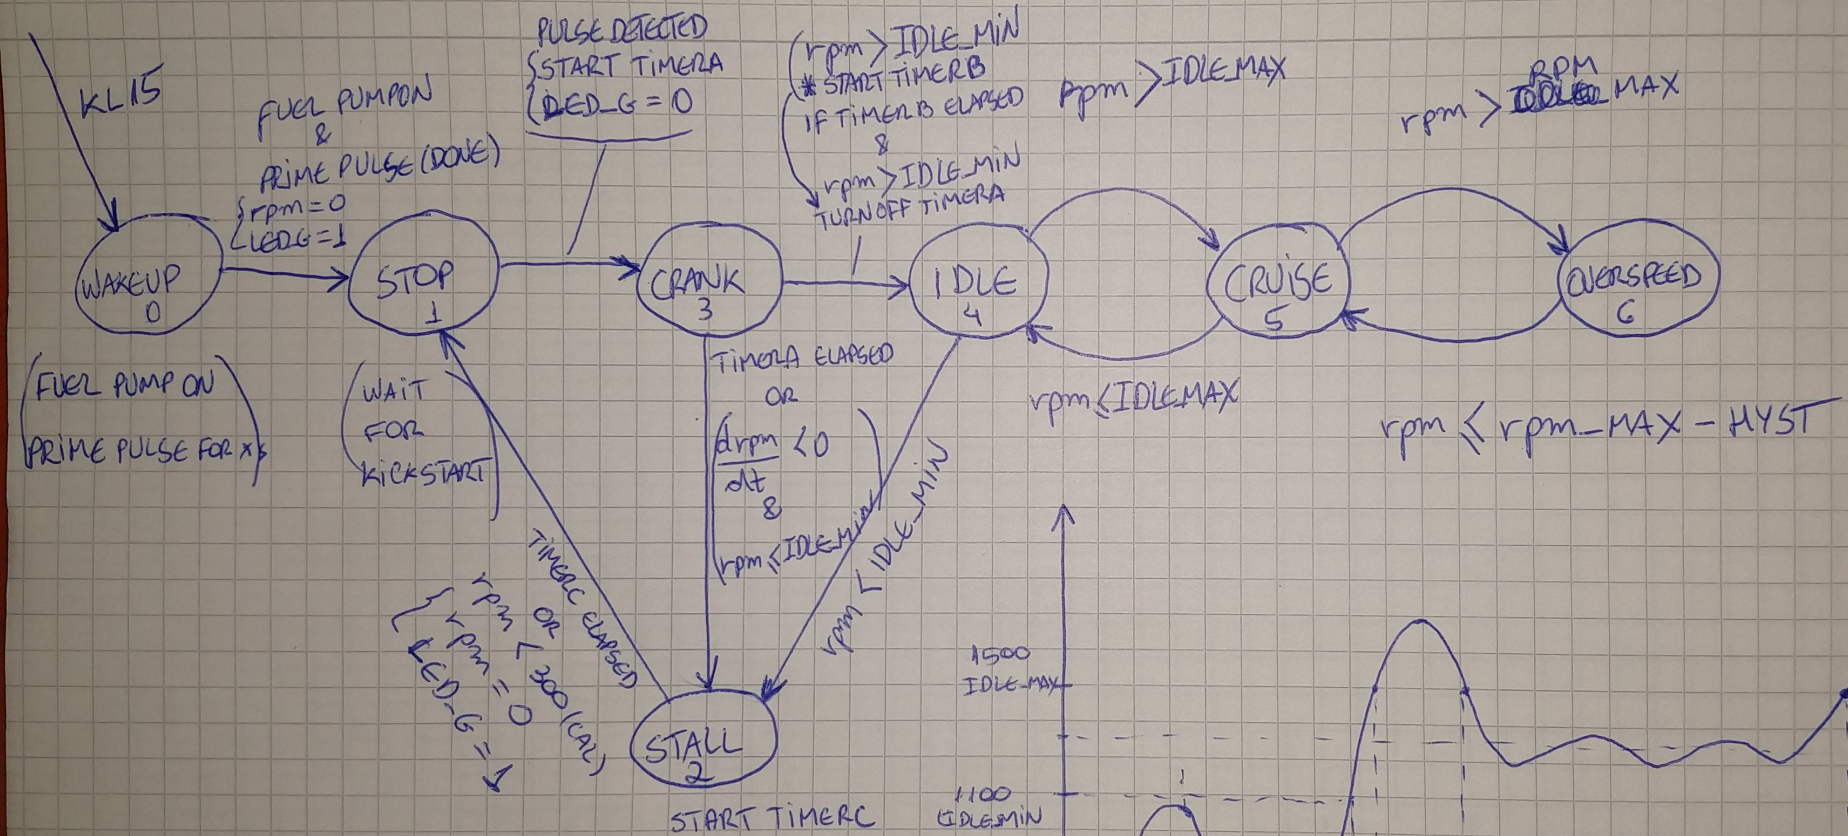 KL15
FUEL PUMP ON
&
PRIME PULSE (DONE)
{rpm=0
LEDG=1
PULSE DETECTED
{START TIMERA
LED_G = 0
(rpm > IDLE_MIN
* START TIMERB
IF TIMERB ELAPSED
&
rpm > IDLE_MIN
TURN OFF TIMERA
rpm > IDLE MAX
RPM
rpm > MAX
WAKEUP
0
STOP
1
CRANK
3
IDLE
4
CRUISE
5
OVERSPEED
6
(FUEL PUMP ON
PRIME PULSE FOR Xs)
(WAIT
FOR
KICKSTART)
TIMERA ELAPSED
OR
(drpm/dt < 0
&
rpm ≤ IDLE_Min)
rpm < IDLE_MIN
rpm ≤ IDLE MAX
rpm ≤ rpm_MAX - HYST
TIMERC ELAPSED
OR
rpm < 300 (CAL)
{rpm = 0
LED_G = 1
STALL
2
START TIMERC
1500
IDLE_MAX
1100
IDLE_MIN